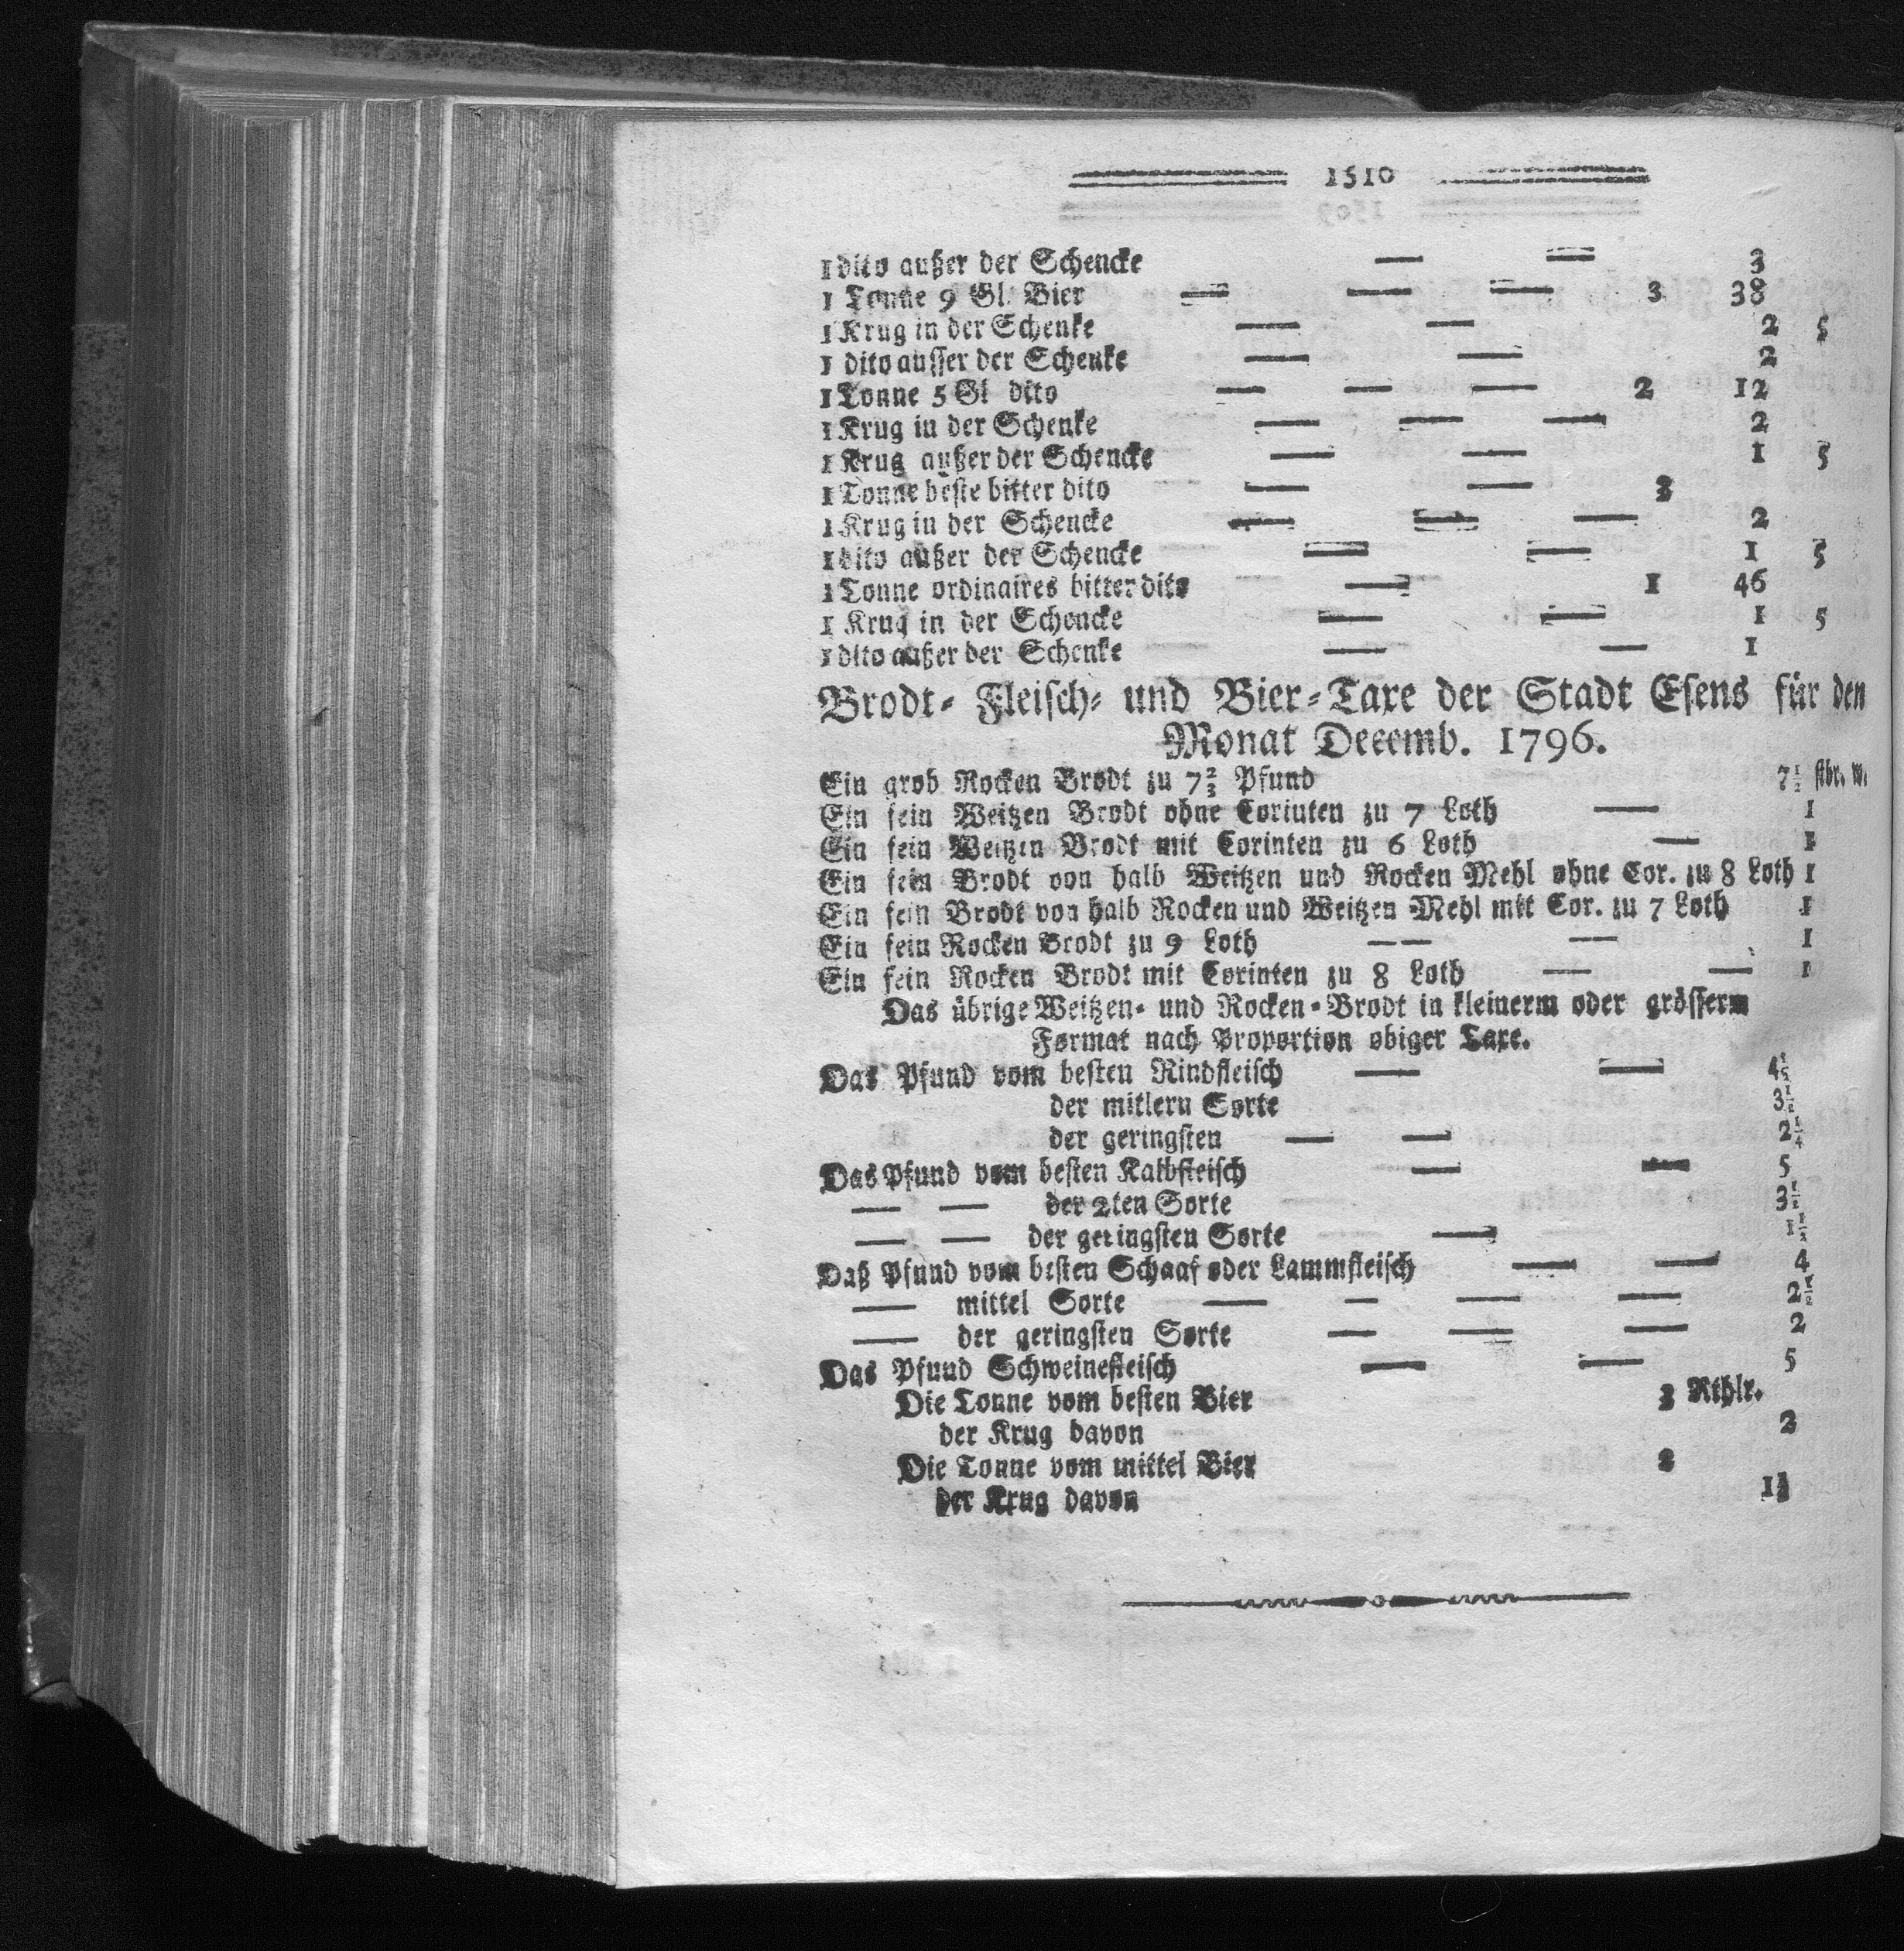 1510
1 dito außer der Schencke — — 3
1 Tonne 9 Gl. Bier — — — 3 38
1 Krug in der Schenke — — 2 5
1 dito ausser der Schenke — — 2
1 Tonne 5 Gl dito — — — 2 12
1 Krug in der Schenke — — — 2
1 Krug außer der Schencke — — 1 5
1 Tonne beste bitter dito — — 3
1 Krug in der Schencke — — — 2
1 dito außer der Schencke — — 1 5
1 Tonne ordinaires bitter dito — 1 46
1 Krug in der Schencke — — 1 5
1 dito außer der Schenke — — 1
Brodt- Fleisch- und Bier-Taxe der Stadt Esens für den
Monat Decemb. 1796.
Ein grob Rocken Brodt zu 7⅔ Pfund 7½ stbr. w.
Ein fein Weitzen Brodt ohne Corinten zu 7 Loth — 1
Ein fein Weitzen Brodt mit Corinten zu 6 Loth — 1
Ein fein Brodt von halb Weitzen und Rocken Mehl ohne Cor. zu 8 Loth 1
Ein fein Brodt von halb Rocken und Weitzen Mehl mit Cor. zu 7 Loth 1
Ein fein Rocken Brodt zu 9 Loth —— — 1
Ein fein Rocken Brodt mit Corinten zu 8 Loth — — 1
Das übrige Weitzen- und Rocken-Brodt in kleinerm oder grösserm
Format nach Proportion obiger Taxe.
Das Pfund vom besten Rindfleisch — — 4
der mitlern Sorte 3½
der geringsten — — 2¼
Das Pfund vom besten Kalbfleisch — — 5
— — der 2ten Sorte 3½
— — der geringsten Sorte — 1½
Daß Pfund vom besten Schaaf oder Lammfleisch — — 4
— mittel Sorte — — — — 2½
— der geringsten Sorte — — — 2
Das Pfund Schweinefleisch — — 5
Die Tonne vom besten Bier 3 Rthlr.
der Krug davon 2
Die Tonne vom mittel Bier 2
der Krug davon